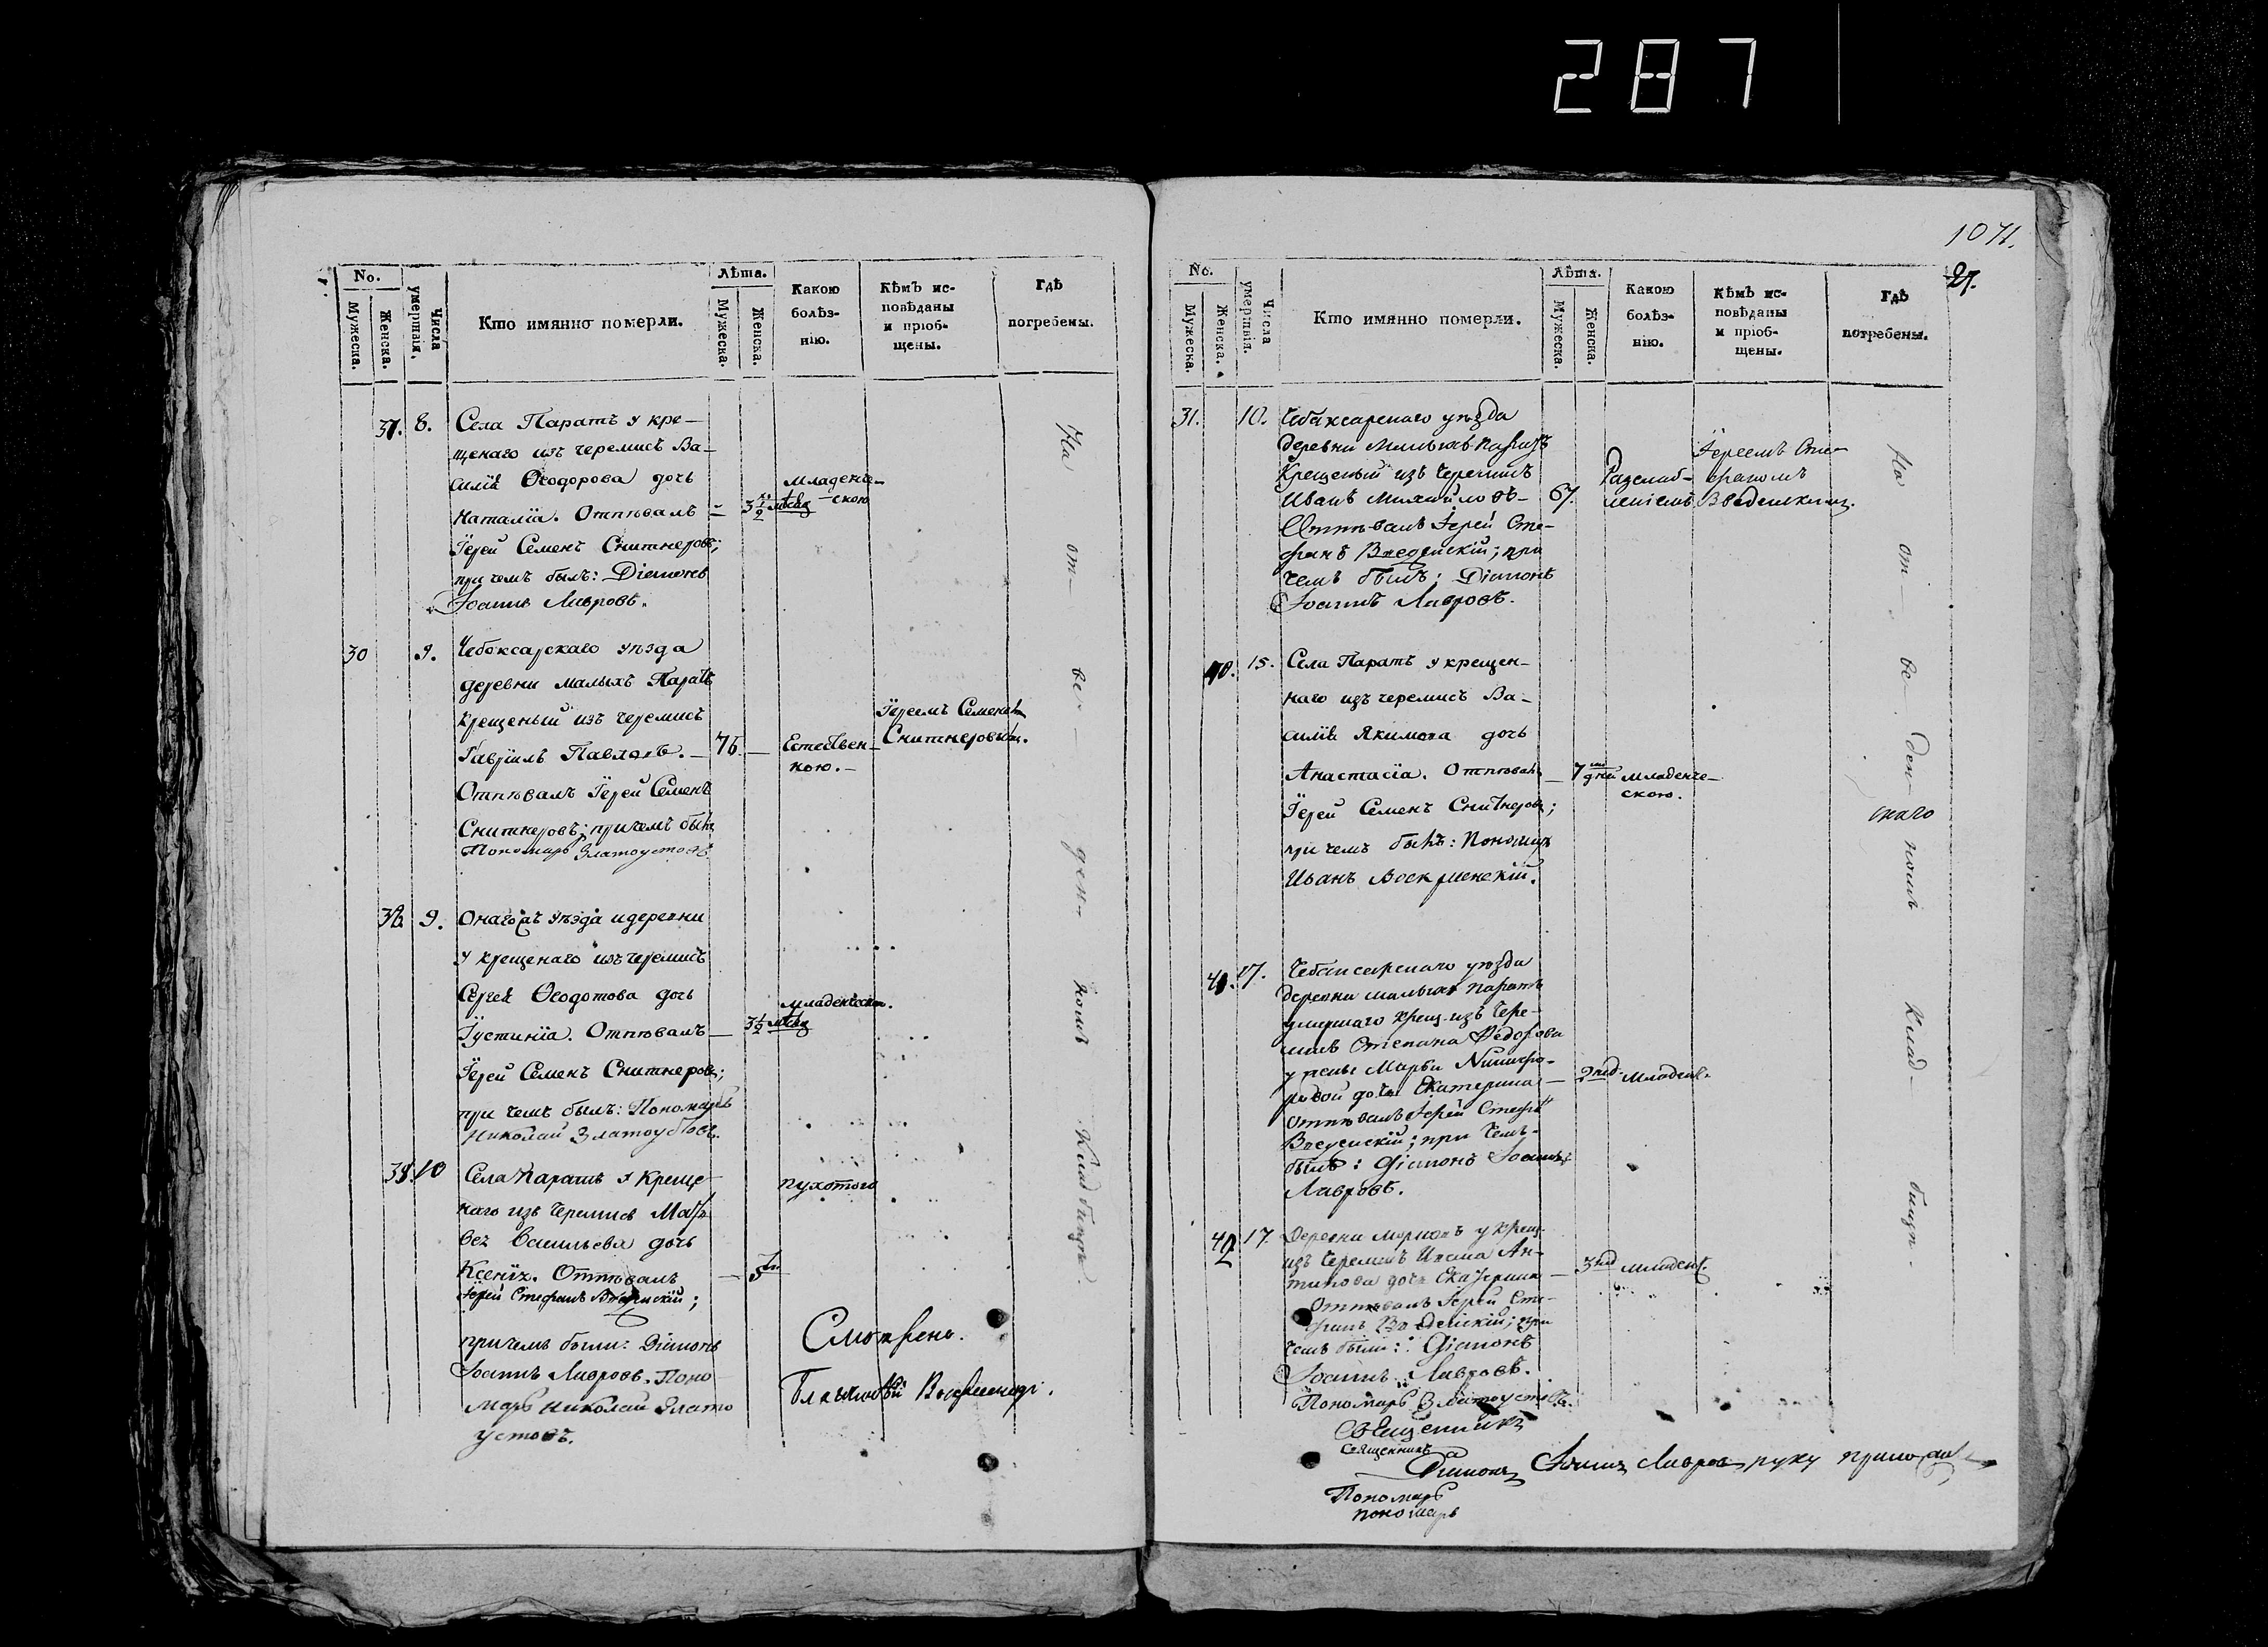 287
1071.
27.
No.
Мужеска.
Женска.
Числа умершія.
Кто имянно померли.
Лѣта.
Мужеска.
Женска.
Какою болѣз-
нію.
Кѣмъ ис-
повѣданы
и пріоб-
щены.
Гдѣ
погребены.
37. 8. Села Паратъ у кре-
щенаго изъ черемисъ Ва-
силія Ѳеодорова дочь
Наталія. Отпѣвалъ
Іерей Семенъ Снитнеровъ;
при чемъ былъ: Діаконъ
Іоаннъ Лавровъ.
3 1/2
младенче-
скою
30 9. Чебоксарскаго уѣзда
деревни малыхъ Паратъ
крещеный изъ черемисъ
Гавріилъ Павловъ.
Отпѣвалъ Іерей Семенъ
Снитнеровъ; причемъ былъ
Пономарь Златоустовъ
Естествен-
ною.
Іереемъ Семеномъ
Снитнеровымъ.
9. Онагожъ уѣзда и деревни
у крещенаго изъ черемисъ
Сергѣя Ѳеодотова дочь
Іустинія. Отпѣвалъ
Іерей Семенъ Снитнеровъ;
при чемъ былъ: Пономарь
Николай Златоустовъ.
3 1/2
10 Села Паратъ у креще-
наго изъ черемисъ Мат-
вея Васильева дочь
Ксенія. Отпѣвалъ
Іерей Стефанъ Введенскій;
причемъ были: Діаконъ
Іоаннъ Лавровъ. Поно-
марь Николай Злато
устовъ.
На от- ве- ден- номъ Кладбищѣ
Смотрѣно.
No.
Мужеска.
Женска.
Числа умершвія.
Кто имянно померли.
Лѣта.
Мужеска.
Женска.
Какою
болѣз-
нію.
Кѣмъ ис-
повѣданы
и пріоб-
щены.
Гдѣ
потребены.
31. 10. Чебоксарскаго уѣзда
деревни малыхъ паратъ
Крещеный изъ черемисъ
Иванъ Михайловъ-
Отпѣвалъ Іерей Сте-
фанъ Введенскій; при
чемъ былъ: Діаконъ
Іоаннъ Лавровъ.
67.
Разслаб-
леніемъ
Іереемъ Сте-
фаномъ
Введенскимъ.
40. 15. Села Паратъ у крещен-
наго изъ черемисъ Ва-
силія Якимова дочь
Анастасія. Отпѣвалъ
Іерей Семенъ Снитнеровъ;
при чемъ былъ: Пономарь
Иванъ Воскресенскій.
7 дней
младенче-
скою.
17. Чебоксарскаго уѣзда
деревни малыхъ паратъ
умершаго крещ. изъ чере-
мисъ Степана Федорова
у жены Марѳы Никифо-
ровой дочь Екатерина
отпѣвалъ Іерей Стефанъ
Введенскій; при чемъ
былъ: Діаконъ Іоаннъ
Лавровъ.
2 нед. младенч.
42 17. Деревни у крещ.
изъ черемисъ Ан-
типова дочь Екатерина
Отпѣвалъ Іерей Сте-
фанъ Введенскій; при
чемъ были: Діаконъ
Іоаннъ Лавровъ.
Пономарь Златоустовъ.
3 нед младенч.
На от- ве- ден- номъ Клад- бищѣ
Священникъ
Священникъ
Діаконъ Іоаннъ Лавровъ руку приложилъ
Пономарь
пономарь